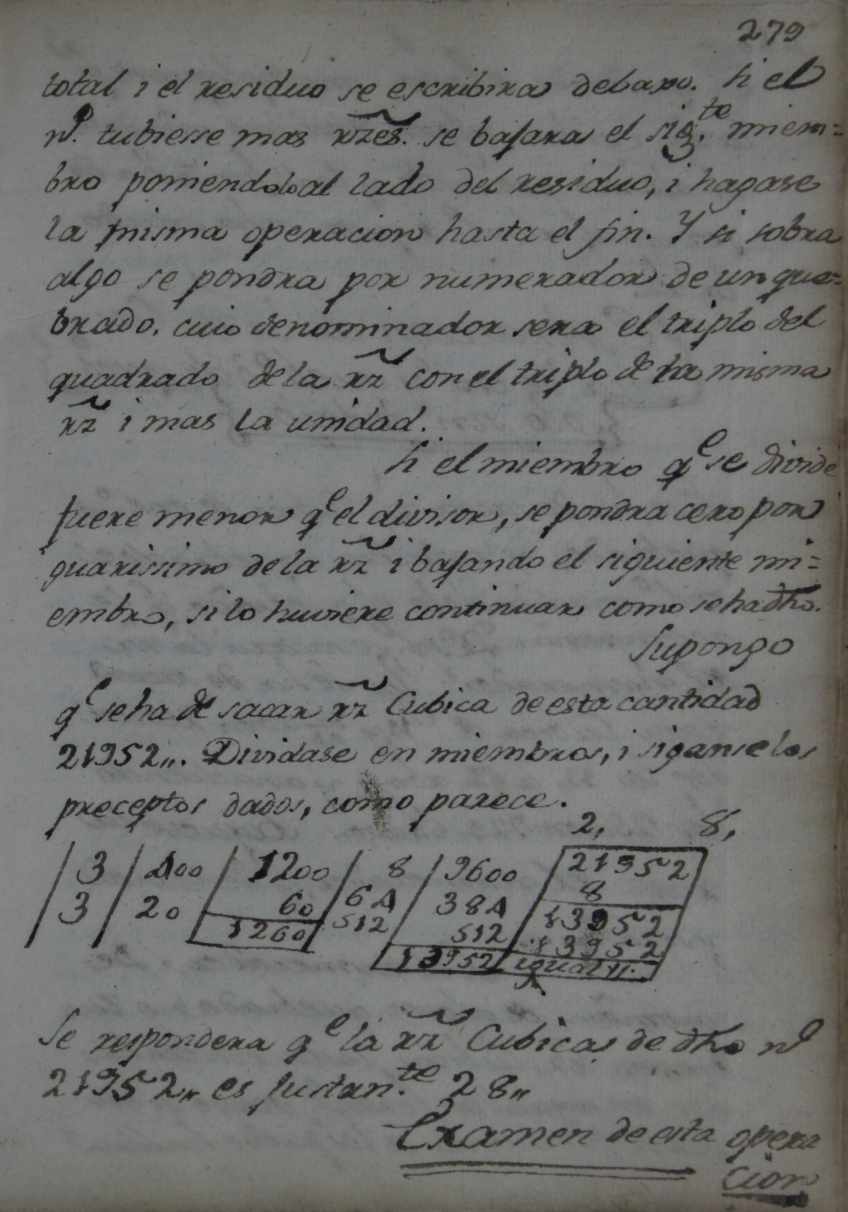 279
total i el residuo se escribira debaxo. Si el
nº. tubiesse mas rzẽs. se bajara el sigte. miem=
bro poniendolo al lado del residuo, i hagase
la misma operacion hasta el fin. Y si sobra
algo se pondra por numerador de un que=
brado, cuio denominador sera el triplo del
quadrado de la rz̃ con el triplo de la misma
rz̃ i mas la unidad.
Si el miembro qe se divide
fuere menor qe el divisor, se pondra cero por
guarissimo de la rz̃ i bajando el siguiente mi=
embro, si lo huviere continuar como se ha dho.
Supongo
qe se ha de sacar rz̃ Cubica de esta cantidad
21952,,. Dividase en miembros, i siganse los
preceptos dados, como parece.
2, 8,
3 400 1200 8 9600 21952
3 20 60 64 384 8
1260 512 512 13952
13952 13952
igual,,.
Se respondera qe la rz̃ Cubica de dho nº
21952,, es justan.te 28,,
Examen de esta opera
cion